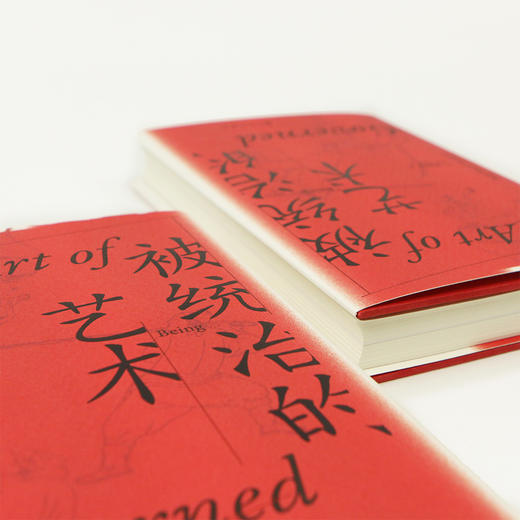 Art of
被统治的
艺术
Governed
rt of
被统治的
艺术
Being
erned